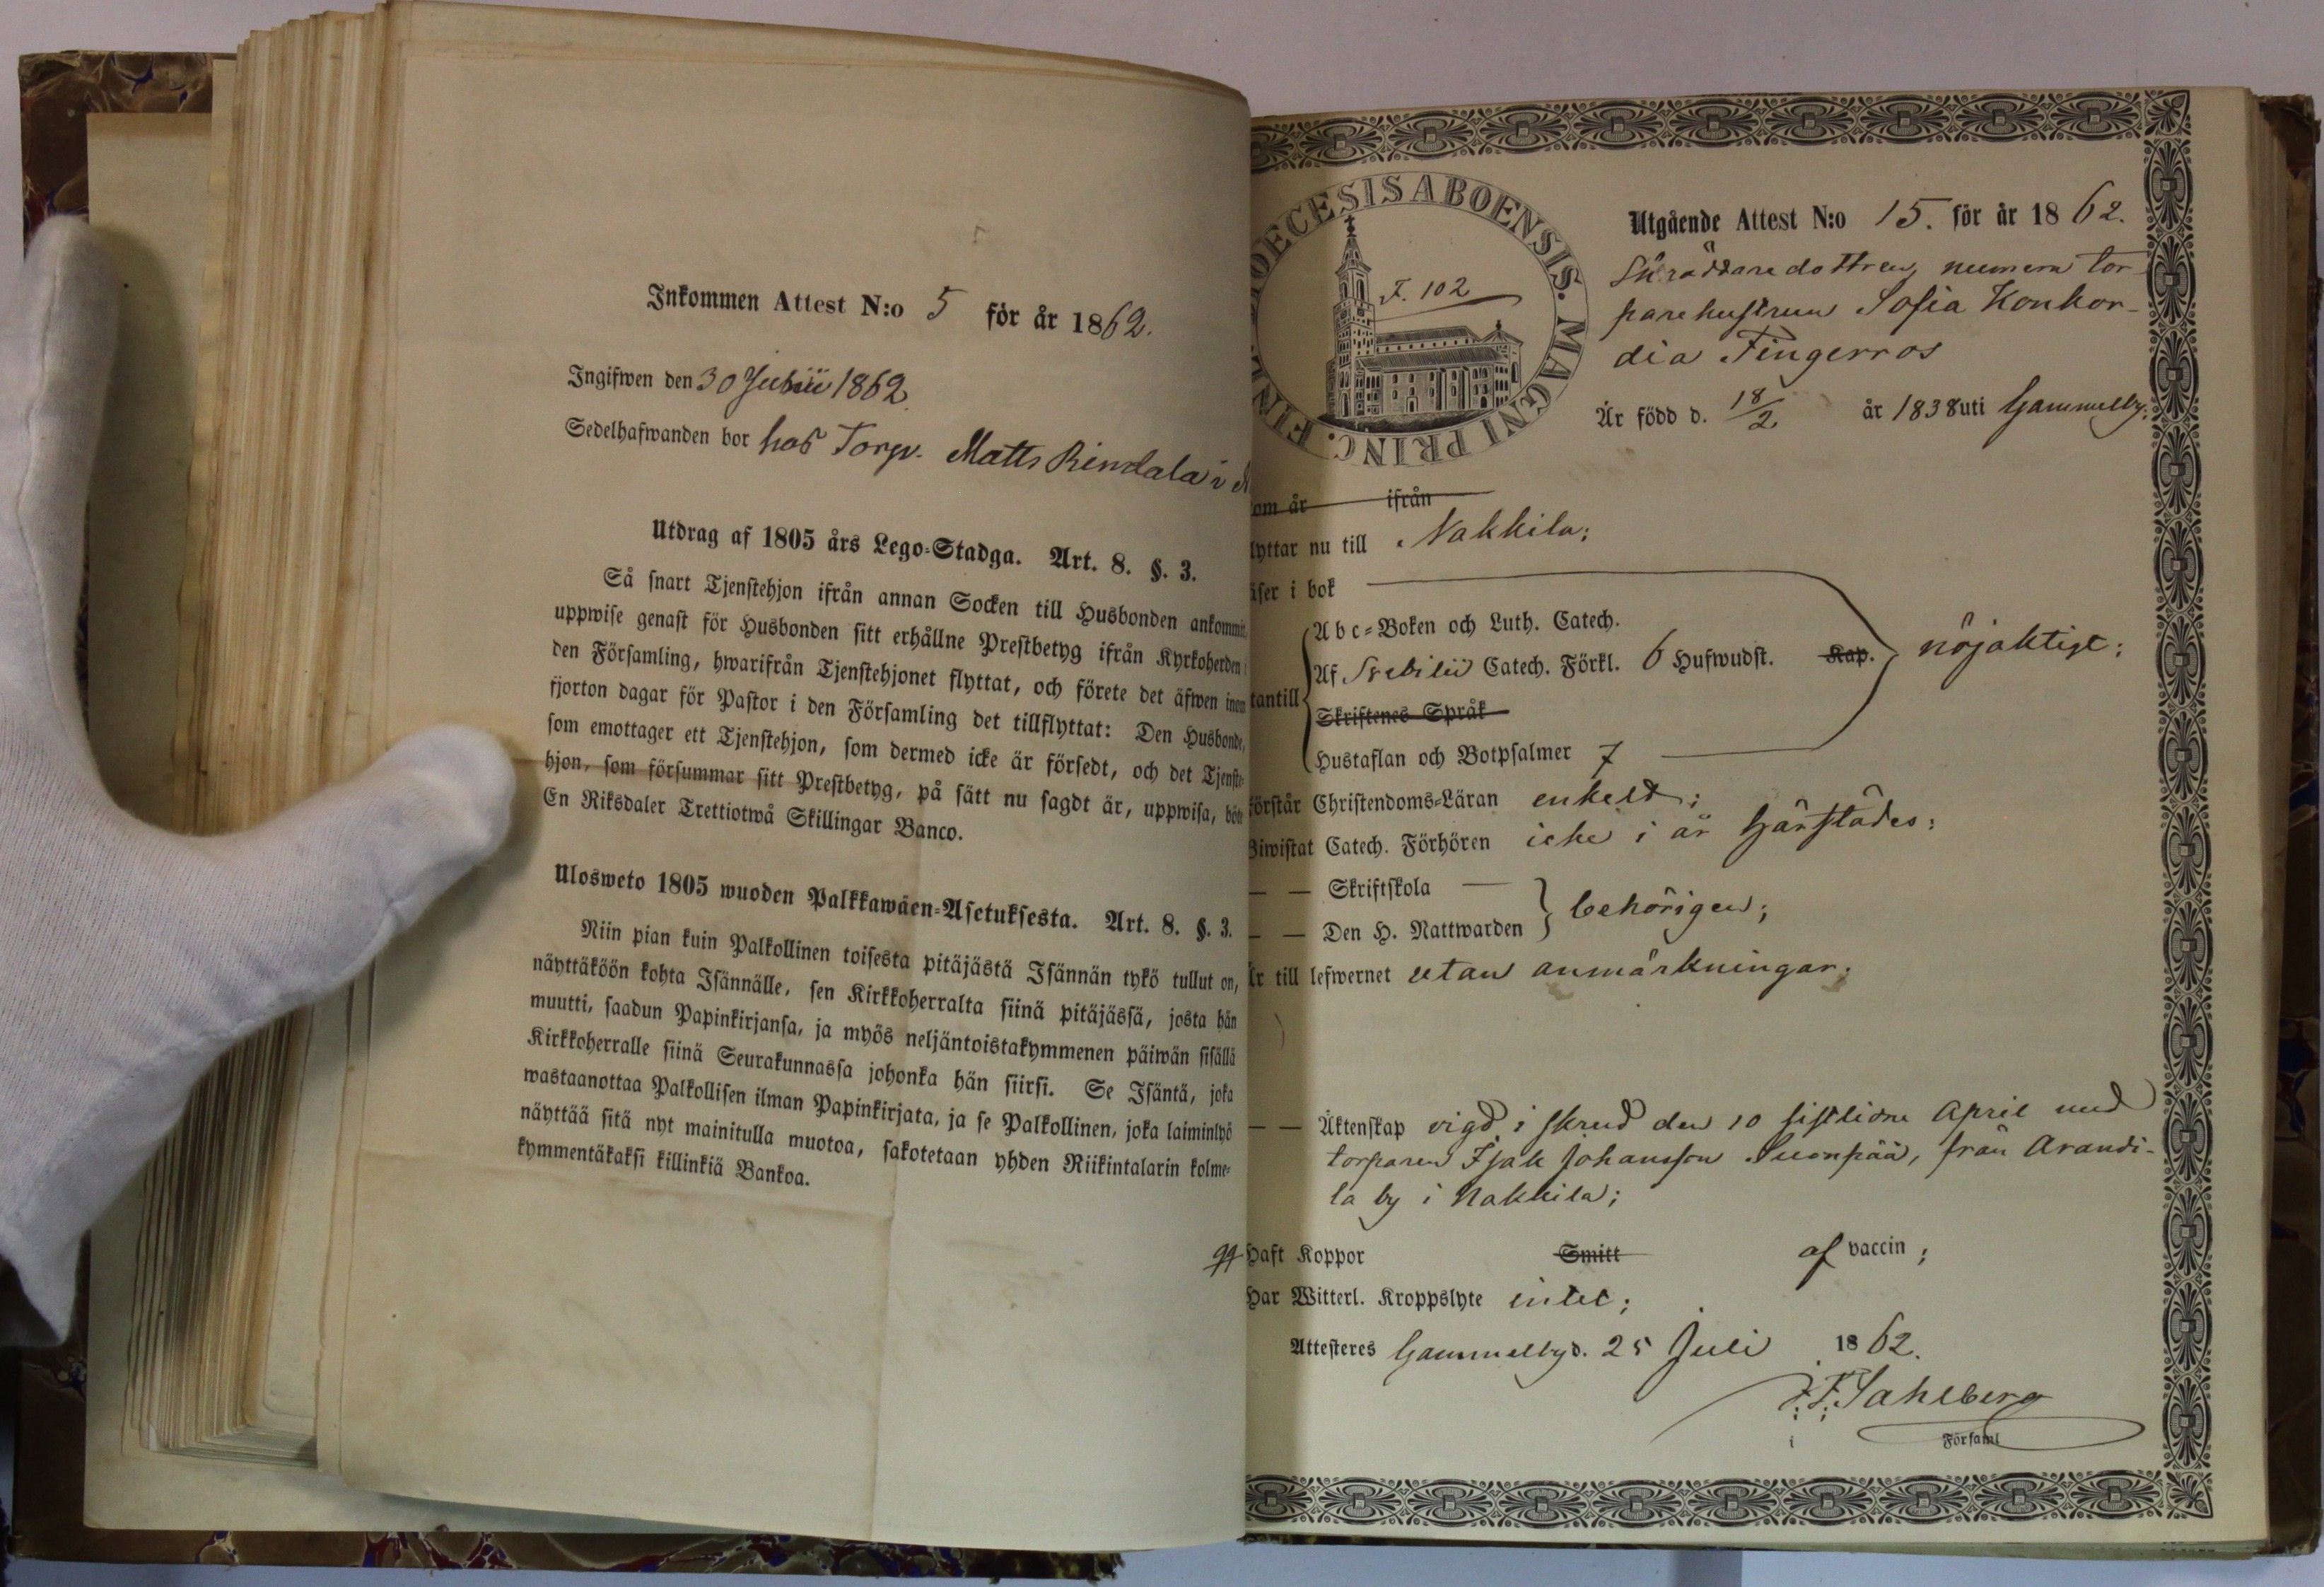 Inkommen Attest N:o 5 för år 1862.
Ingifwen den 30 Julii 1862.
Sedelhafwanden bor hos Torp. Matts Rindala i
Utdrag af 1805 års Lego-Stadga. Art. 8. §. 3.
Så snart Tjenstehjon ifrån annan Socken till Husbonden ankommit,
uppwise genast för Husbonden sitt erhållne Prestbetyg ifrån Kyrkoherden i
den Församling, hwarifrån Tjenstehjonet flyttat, och förete det äfwen inom
fjorton dagar för Pastor i den Församling det tillflyttat: Den Husbonde,
som emottager ett Tjenstehjon, som dermed icke är försedt, och det Tjenste-
hjon, som försummar sitt Prestbetyg, på sätt nu sagdt är, uppwisa, böte
En Riksdaler Trettiotwå Skillingar Banco.
Ulosweto 1805 wuoden Palkkawäen-Asetuksesta. Art. 8. §. 3.
Niin pian kuin Palkollinen toisesta pitäjästä Isännän tykö tullut on,
näyttäköön kohta Isännälle, sen Kirkkoherralta siinä pitäjässä, josta hän
muutti, saadun Papinkirjansa, ja myös neljäntoistakymmenen päiwän sisällä
Kirkkoherralle siinä Seurakunnassa johonka hän siirsi. Se Isäntä, joka
wastaanottaa Palkollisen ilman Papinkirjata, ja se Palkollinen, joka laiminlyö
näyttää sitä nyt mainitulla muotoa, sakotetaan yhden Riikintalarin kolme-
kymmentäkaksi killinkiä Bankoa.
OECESIS ABOENSIS. MAGNI PRINC. FINL
F. 102
Utgående Attest N:o 15. för år 1862.
Skräddaredottren, numera tor-
parehustrun Sofia Konkor-
dia Fingerroos
Är född d. 18/2 år 1838 uti Gammelby.
om år ifrån
lyttar nu till Nakkila;
äser i bok
Abc-Boken och Luth. Catech.
Af Svebilii Catech. Förkl. 6 Hufwudst. Kap. nöjaktigt;
tantill
Skriftenes Språk
Hustaflan och Botpsalmer 7
förstår Christendoms-Läran enkelt;
Biwistat Catech. Förhören icke i år härstädes;
— — Skriftskola —
— — Den H. Nattwarden behörigen;
Är till lefwernet utan anmärkningar;
— — Äktenskap vigd i skrud den 10 sistlidne April med
torparen Isak Johansson Suonpää, från Arandi-
la by i Nakkila;
Haft Koppor Smitt af vaccin;
Har Witterl. Kroppslyte intet;
Attesteres Gammelby d. 25 Juli 1862.
J. F. Sahlberg
i Församl